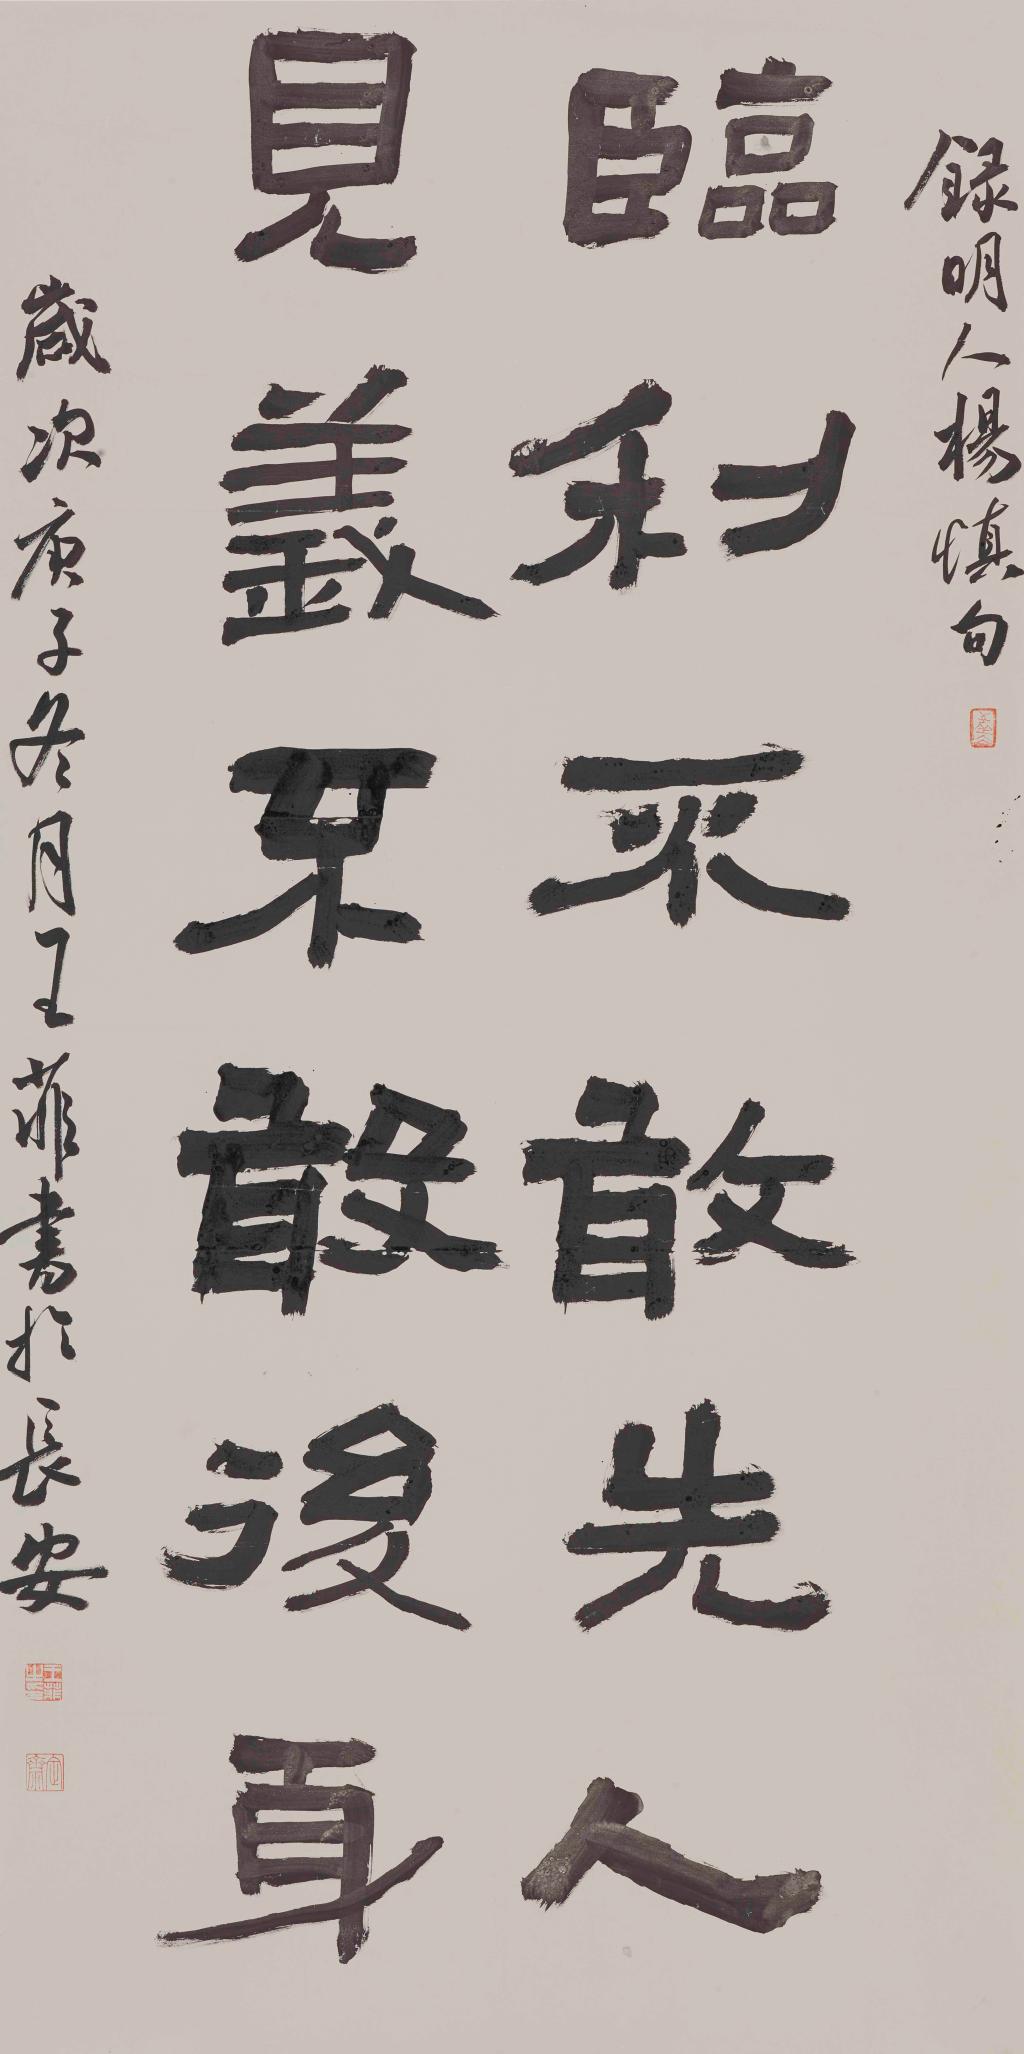 録明人楊慎句
臨利不敢先人
見義不敢後身
歲次庚子冬月王菲書於長安